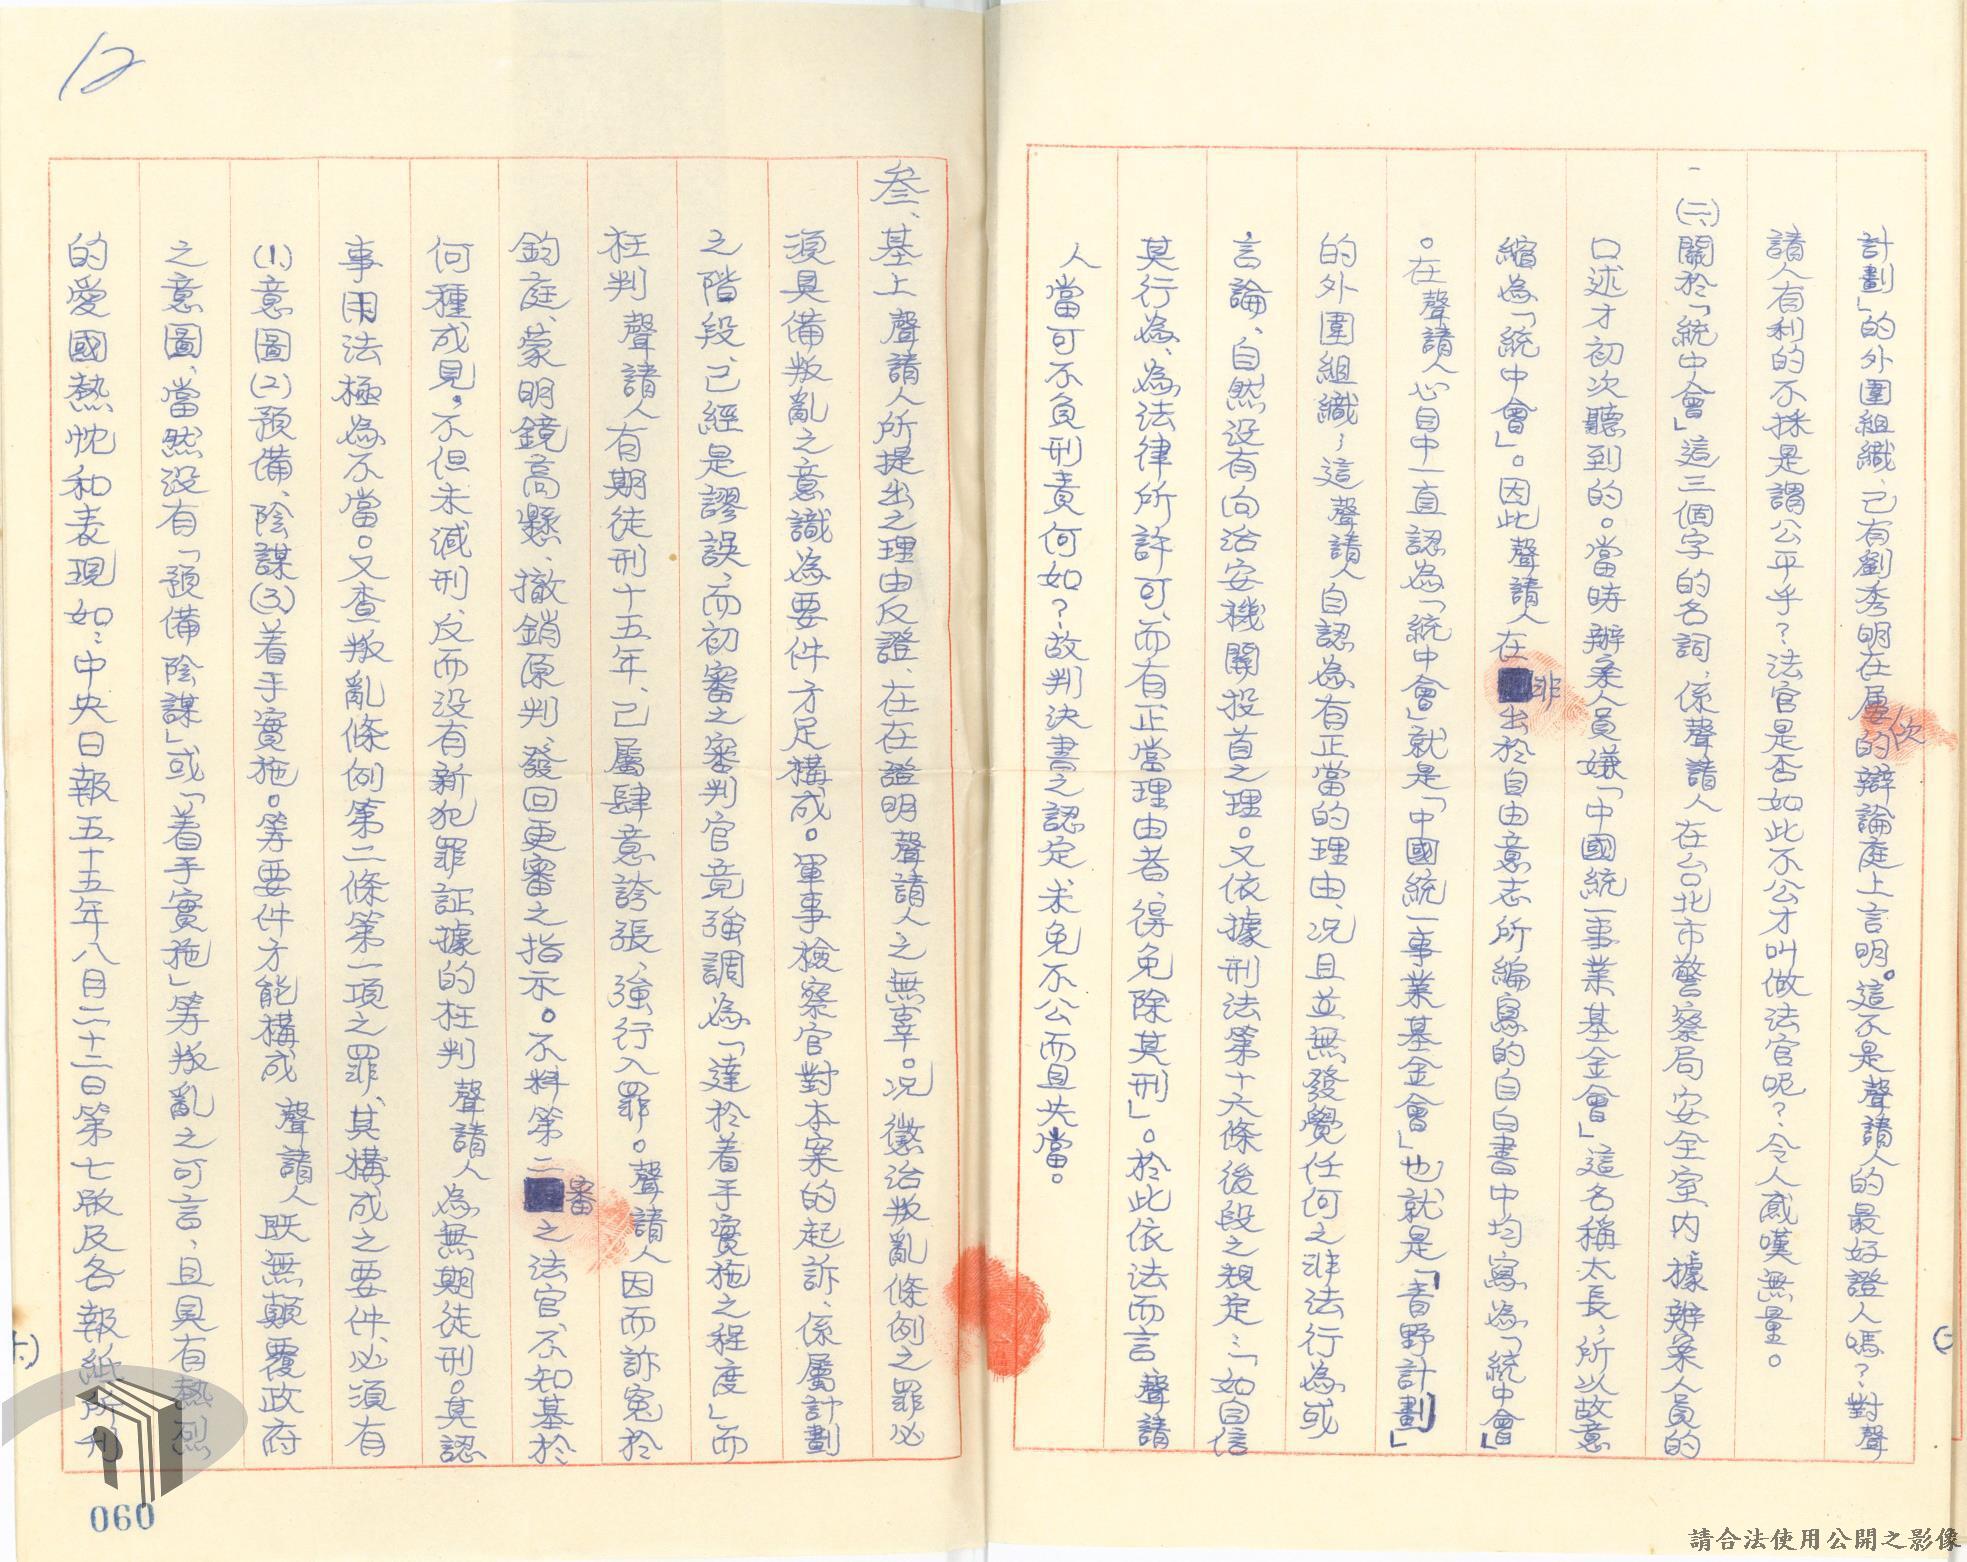 計劃」的外圍組織、已有劉秀明在屢次的辯論庭上言明。這不是聲請人的最好證人嗎？對聲
請人有利的不採是謂公平乎？法官是否如此不公才叫做法官呢？令人感嘆無量。
㈡、關於「統中會」這三個字的名詞、係聲請人在台北市警察局安全室內據辦案人員的
口述才初次聽到的。當時辦案人員嫌「中國統一事業基金會」這名稱太長，所以故意
縮為「統中會」。因此聲請人在非出於自由意志所編寫的自白書中均寫為「統中會」
。在聲請人心目中一直認為「統中會」就是「中國統一事業基金會」也就是「青野計劃」
的外圍組織，這聲請人自認為有正當的理由、況且並無發覺任何之非法行為或
言論、自然沒有向治安機關投首之理。又依據刑法第十六條後段之規定：「如自信
其行為、為法律所許可、而有正當理由者、得免除其刑」。於此依法而言聲請
人當可不負刑責何如？故判決書之認定未免不公而且失當。
叁、基上聲請人所提出之理由反證、在在證明聲請人之無辜。況懲治叛亂條例之罪必
須具備叛亂之意識為要件方足構成。軍事檢察官對本案的起訴、係屬計劃
之階段、已經是謬誤、而初審之審判官竟強調為「達於着手實施之程度」而
枉判聲請人有期徒刑十五年、已屬肆意誇張、強行入罪。聲請人因而訴冤於
鈞庭、蒙明鏡高懸、撤銷原判、發回更審之指示。不料第二審之法官、不知基於
何種成見。不但未減刑、反而沒有新犯罪証據的枉判聲請人為無期徒刑。其認
事用法極為不當。又查叛亂條例第二條第一項之罪、其構成之要件、必須有
⑴、意圖⑵、預備、陰謀⑶、着手實施。等要件才能構成聲請人既無顛覆政府
之意圖、當然沒有「預備陰謀」或「着手實施」等叛亂之可言、且具有熱烈
的愛國熱忱和表現如：中央日報五十五年八月二十二日第七版及各報紙所刊
12
060
請合法使用公開之影像